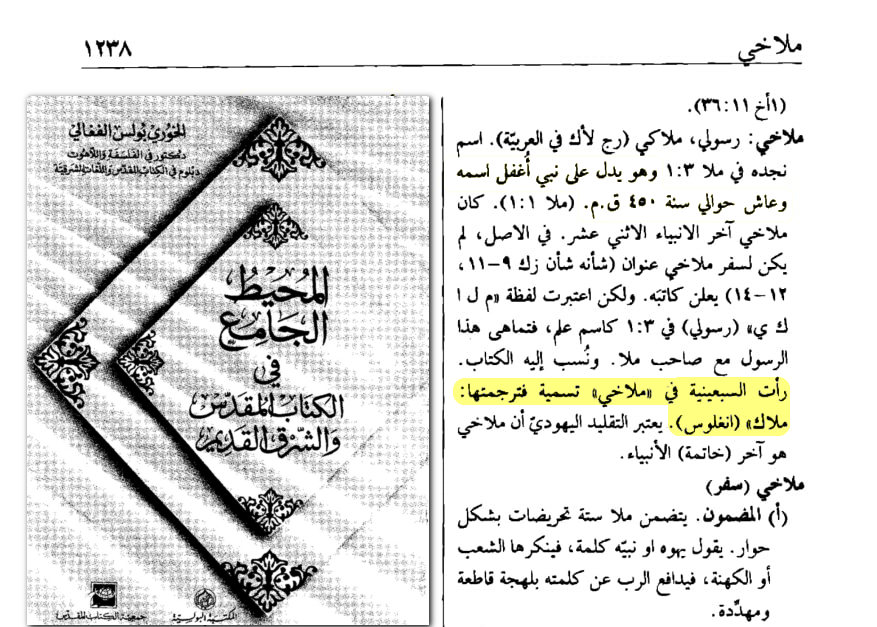 ملاخي
١٢٣٨
(١أخ ١١:٣٦).
ملاخي: رسولي، ملاكي (رج لأك في العربيّة). اسم
نجده في ملا ١:٣ وهو يدل على نبي أُغفل اسمه
وعاش حوالي سنة ٤٥٠ ق.م. (ملا ١:١). كان
ملاخي آخر الانبياء الاثني عشر. في الاصل، لم
يكن لسفر ملاخي عنوان (شأنه شأن زك ٩-١١،
١٢-١٤) يعلن كاتبَه. ولكن اعتبرت لفظة «م ل ا
ك ي» (رسولي) في ١:٣ كاسم علم، فتماهى هذا
الرسول مع صاحب ملا. ونُسب إليه الكتاب.
رأت السبعينية في «ملاخي» تسمية فترجمتها:
ملاك» (انغلوس). يعتبر التقليد اليهوديّ أن ملاخي
هو آخر (خاتمة) الأنبياء.
ملاخي (سفر)
(أ) المضمون. يتضمن ملا ستة تحريضات بشكل
حوار. يقول يهوه او نبيّه كلمة، فينكرها الشعب
أو الكهنة، فيدافع الرب عن كلمته بلهجة قاطعة
ومهدِّدة.
الخوري بولس الفغالي
دكتور في الفلسفة واللاهوت
دبلوم في الكتاب المقدس واللغات الشرقية
المُحيطُ
الجَامع
في
الكتاب المقدّس
والشّرق القديم
جمعية الكتاب المقدس
المكتبة البولسية